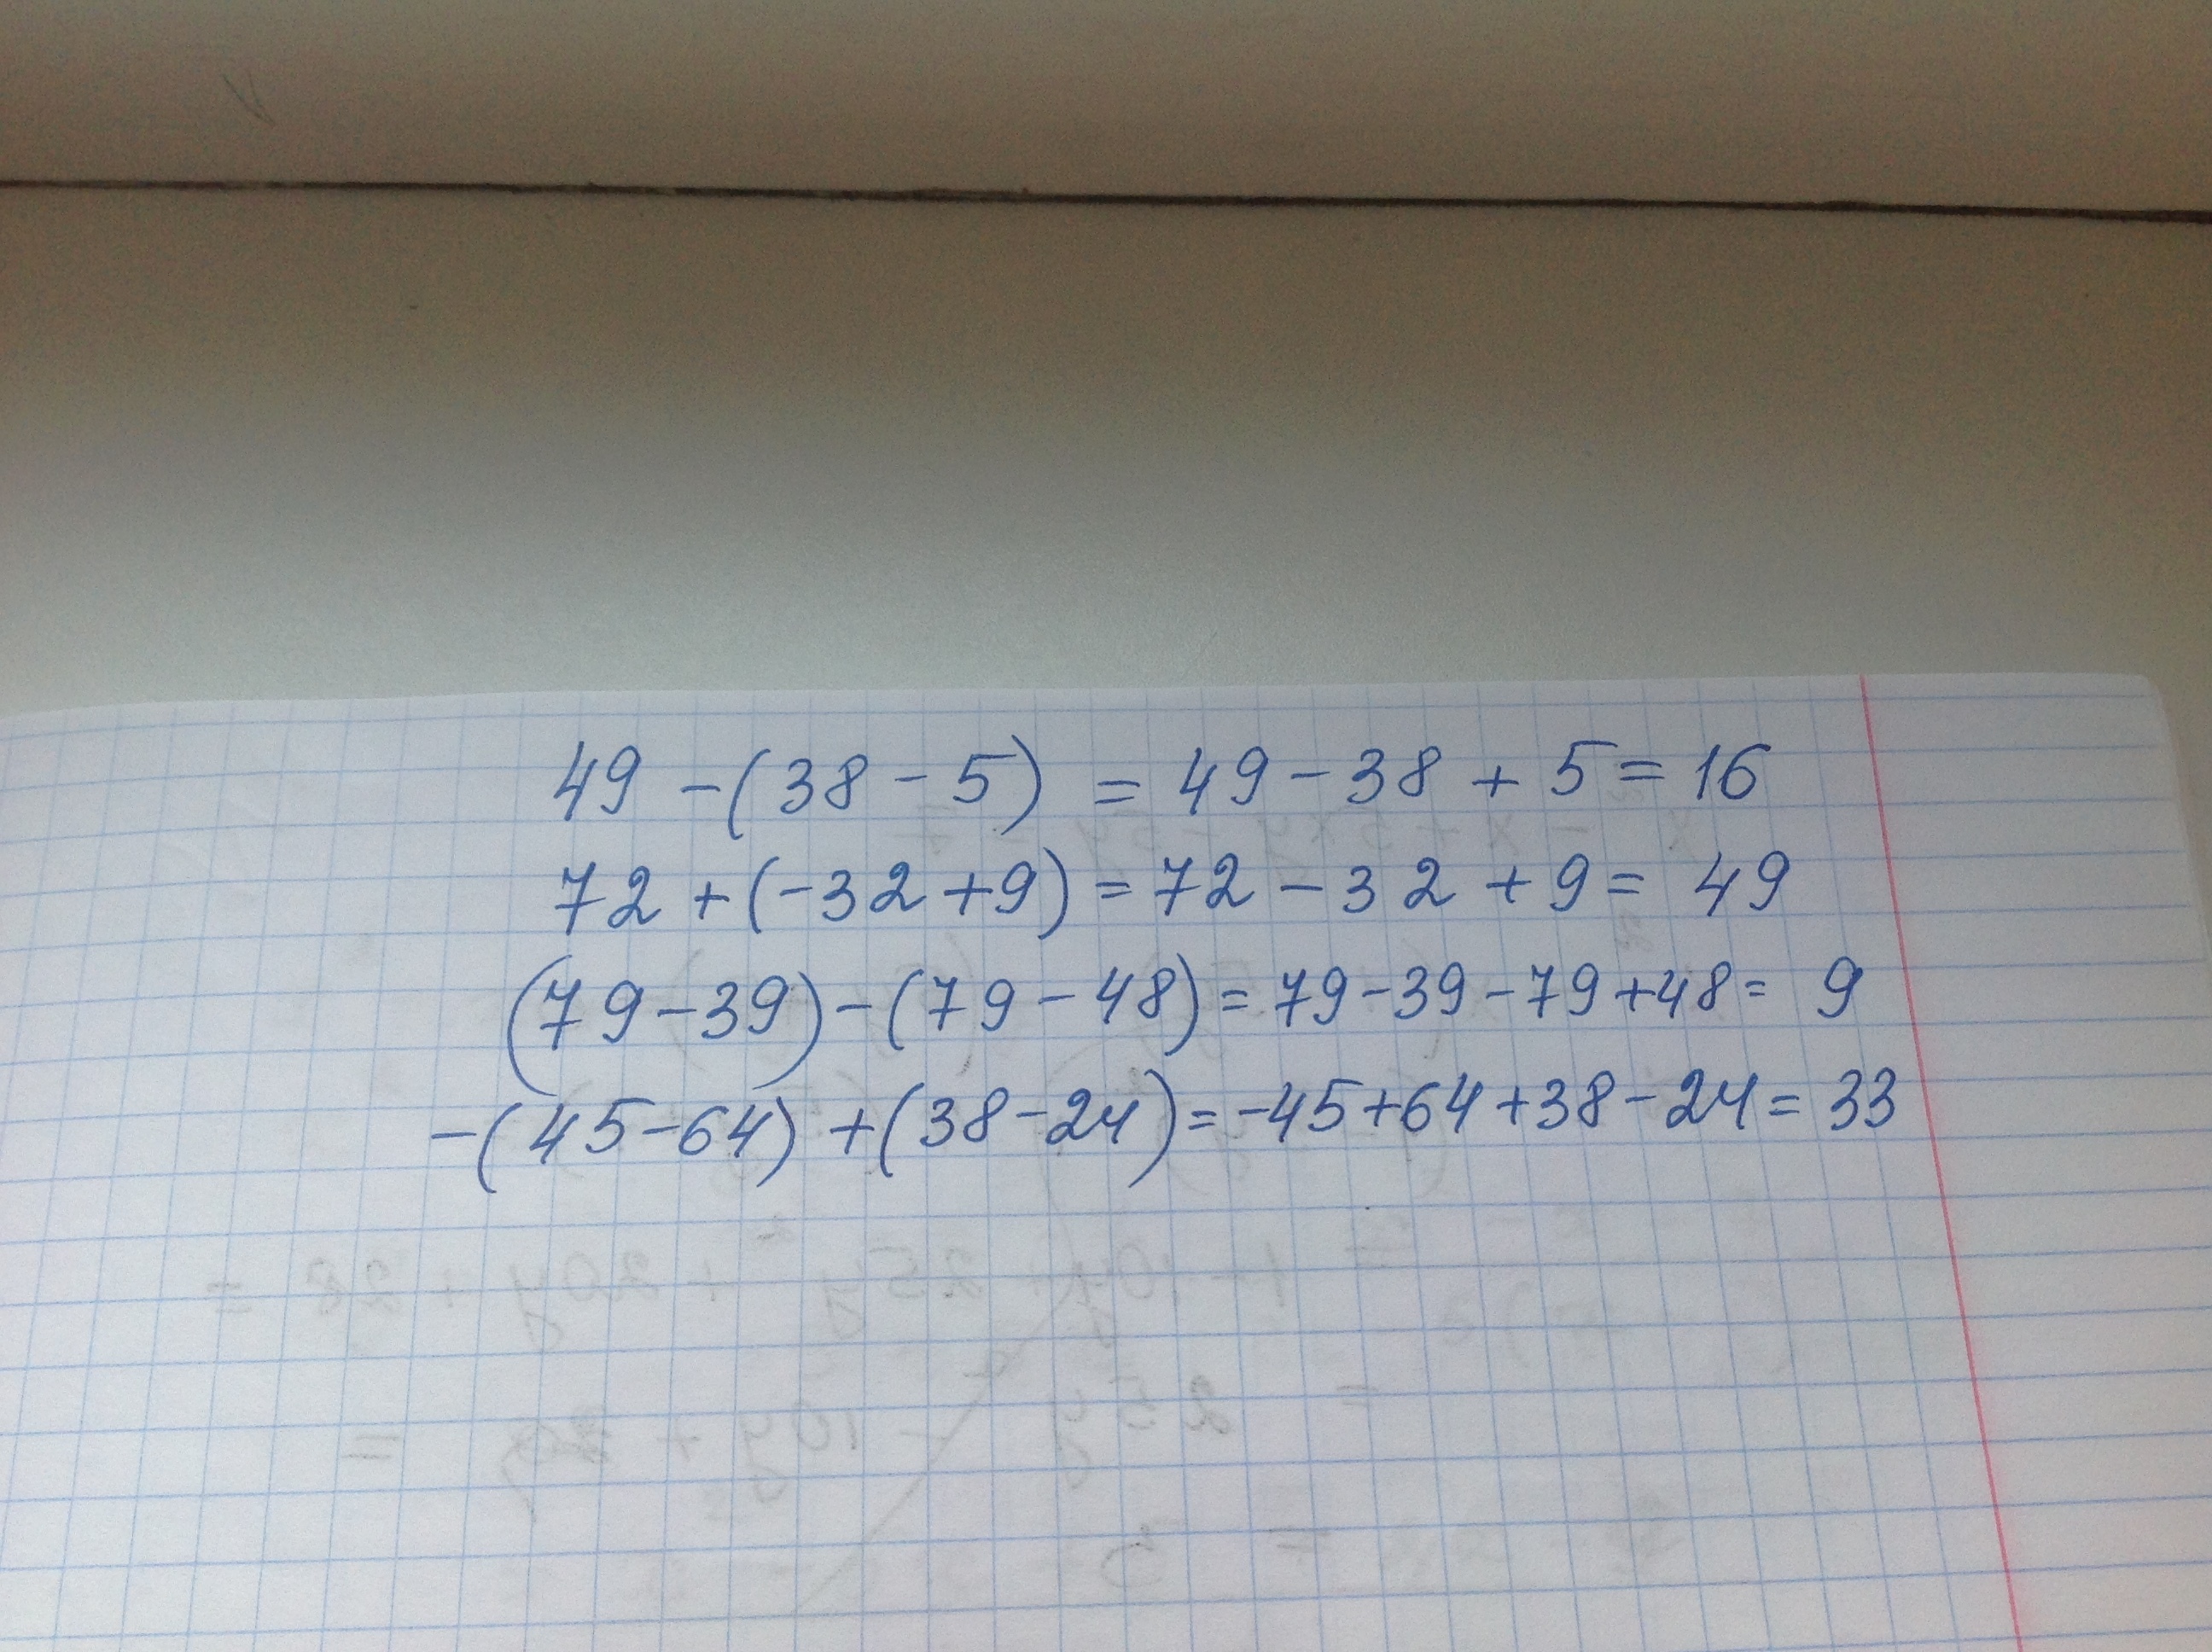 49 - (38 - 5) = 49 - 38 + 5 = 16
72 + (-32 + 9) = 72 - 32 + 9 = 49
(79 - 39) - (79 - 48) = 79 - 39 - 79 + 48 = 9
-(45 - 64) + (38 - 24) = -45 + 64 + 38 - 24 = 33